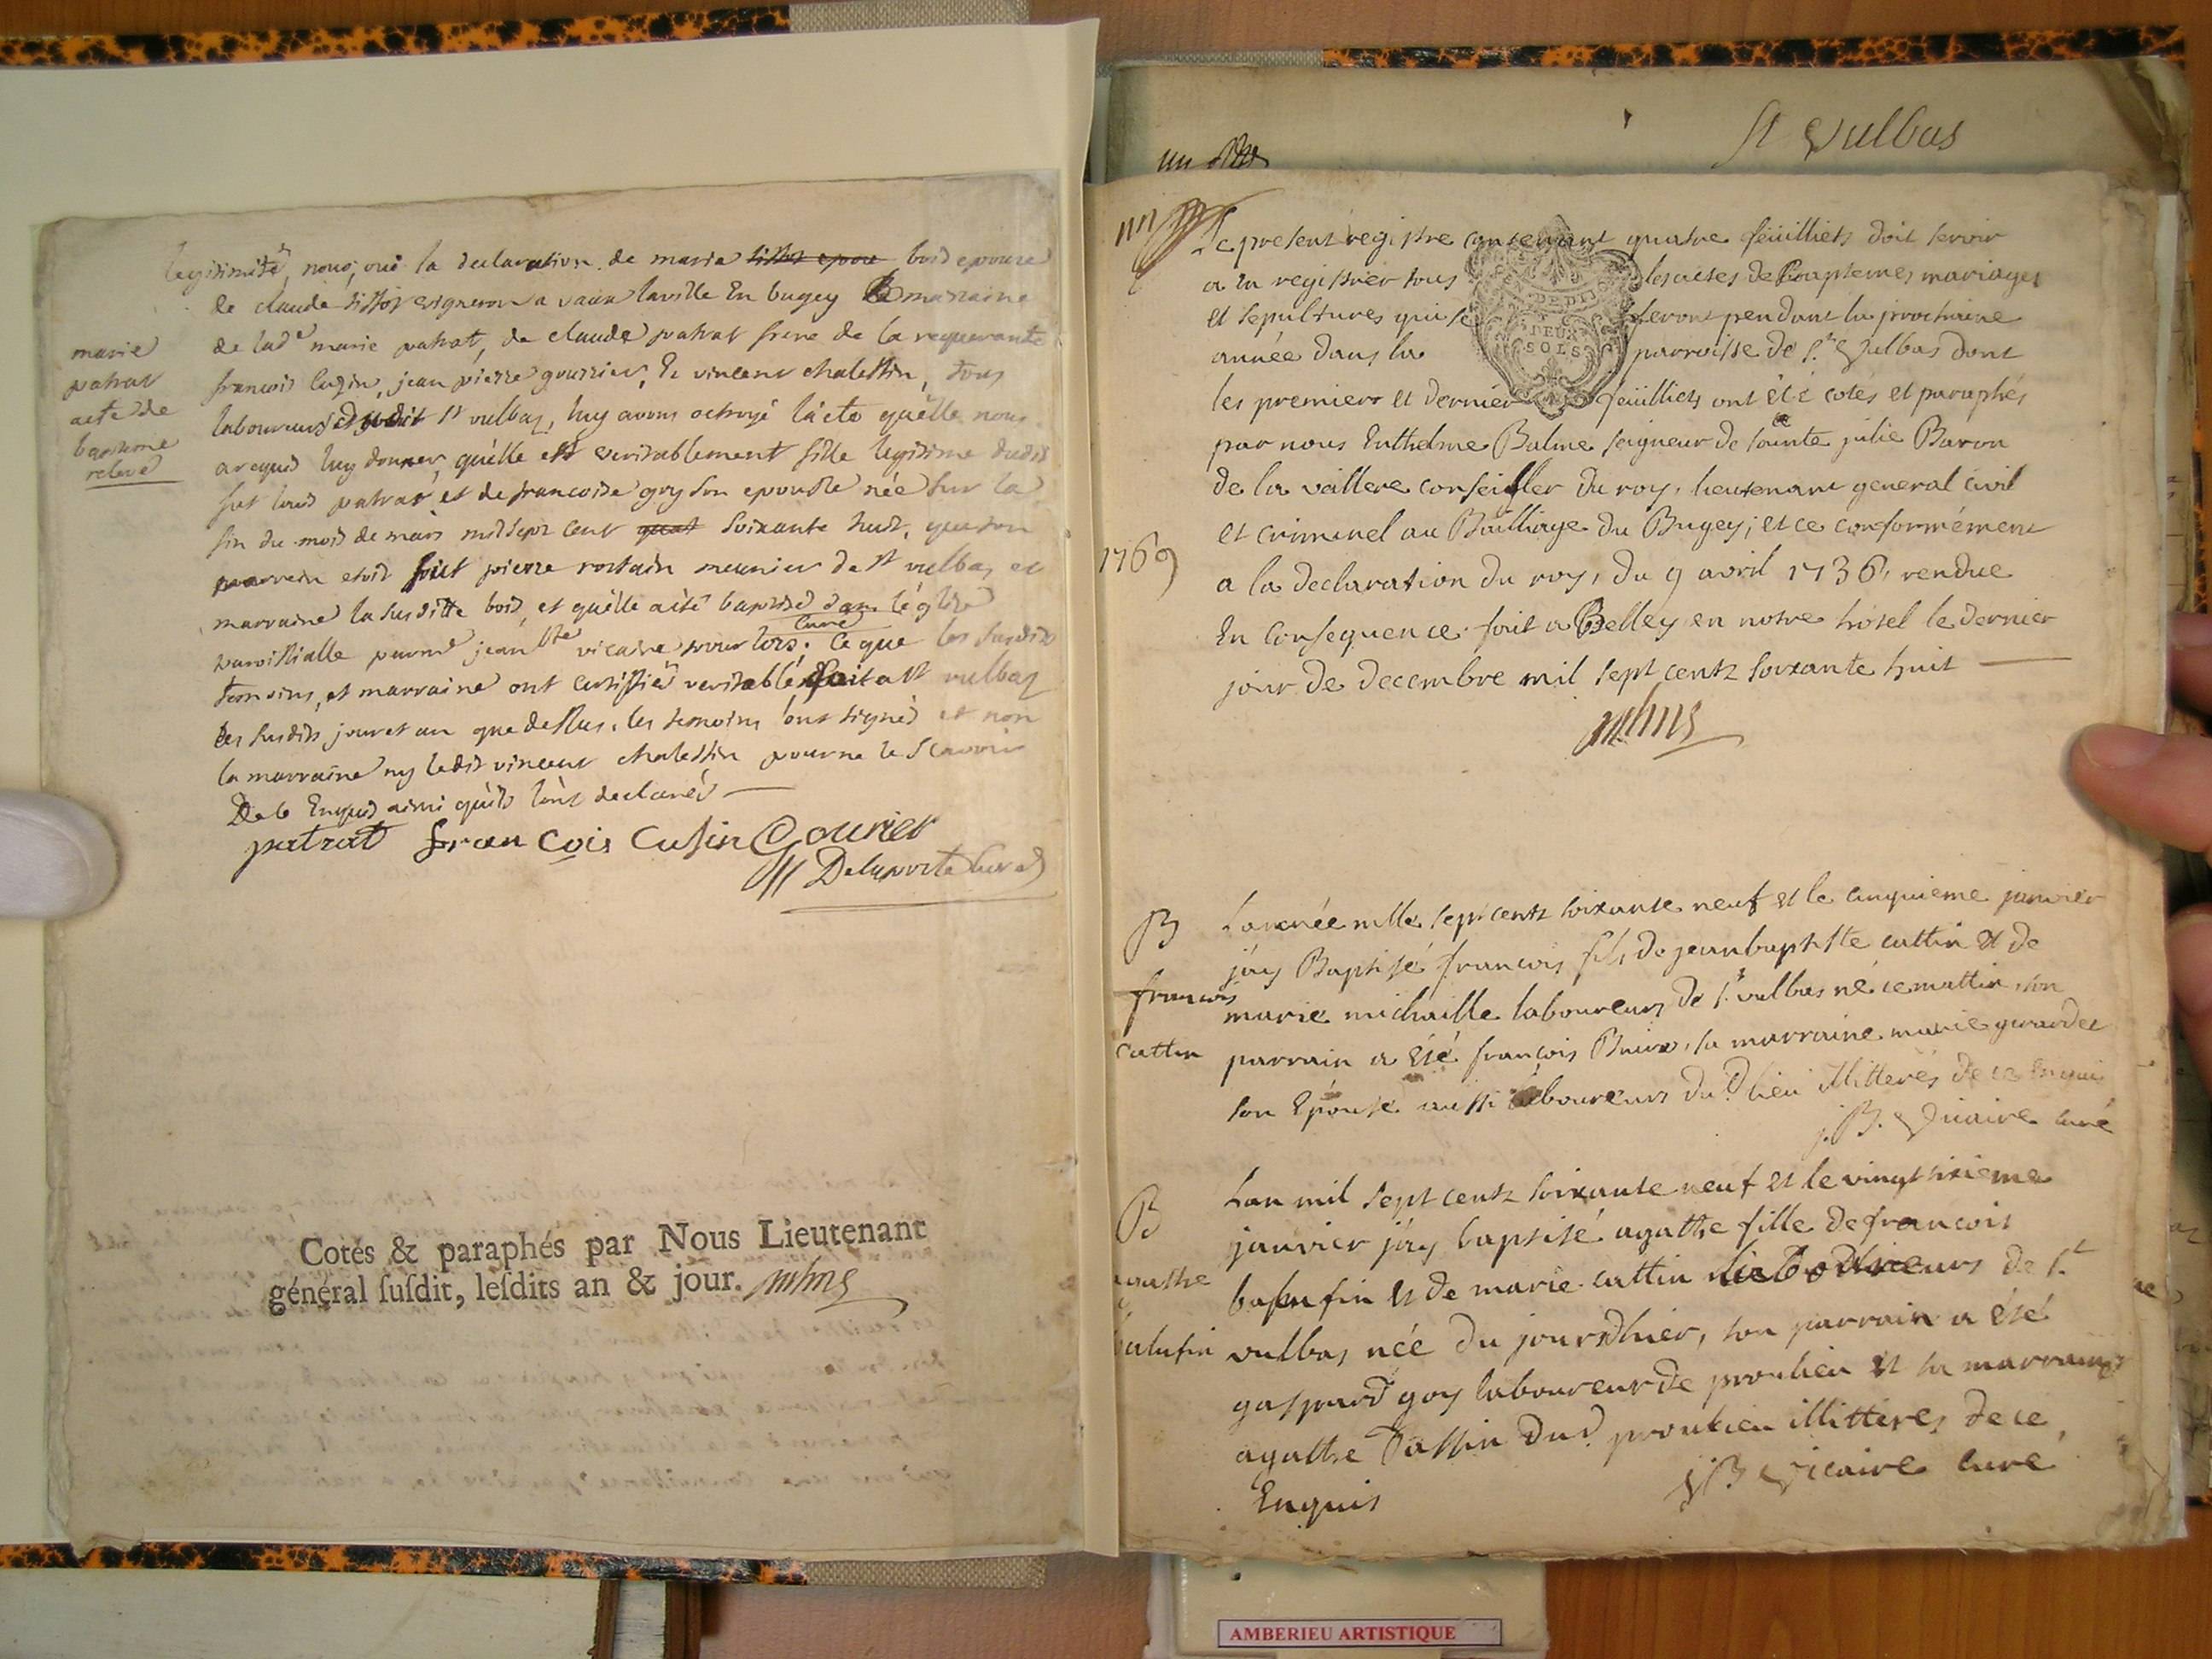 legitimité, nous, oui la declaration de marie tissot epou bois epouse
de claude tissot vigneron a vaux laville En bugey & marraine
de lad.e marie patrat, de claude patrat frere de la requerante
françois cuzin, jean pierre gourrier, Et vincent chalestin, tous
laboureurs dudit st vulbas, luy avons octroyé l'acte qu'elle nous
a requis luy donner, qu'elle est veritablement fille legitime dudit
fut louis patrat et de francoise goy son epouse née sur la
fin du mois de mars mil sept cent quat soixante huit, que son
parrein etoit feut pierre rostain meunier de st vulbas et
marraine la susditte bois, et quelle a été baptisée dans léglise
paroissialle par mre jean bte vicaire curé pour lors; ce que les susdits
temoins, et marraine ont certiffié veritable, fait a st vulbas
les susdits jour et an que dessus, les temoins ont signés et non
la marraine ny ledit vincent chalestin pour ne le scavoir
De ce Enquis ainsi qu'ils l'ont declarés
patrat françois Cusin Gourier
Delaporte curé
marie
patrat
acte de
bapteme
relevé
Cotés & paraphés par Nous Lieutenant
général susdit, lesdits an & jour.
St Vulbas
un
Le present registre contenant quatre feüilliets doit servir
a en registrer tous les actes de Baptemes, mariages
et sepultures qui se feront pendant la prochaine
année dans la parroisse de S.t Vulbas dont
DEUX
SOLS
les premier et dernier feüilliets ont été cotés et paraphés
par nous Enthelme Balme seigneur de sainte julie Baron
de la veillere conseiller du roy, lieutenant general civil
et criminel au Bailliage du Bugey; et ce conformément
1769
a la declaration du roy, du 9 avril 1736, rendue
En Consequence. fait a Belley en notre hotel le dernier
jour de decembre mil sept centz soixante huit
B
françois
cattin
L'année mille sept centz soixante neuf et le cinquieme janvier
j'ay Baptisé françois fils de jean baptiste cattin et de
marie michaille laboureurs de S.t vulbas né ce mattin, son
parrain a été françois Buire, sa marraine marie girardet
son Epouse aussi laboureurs dud. lieu illitterés de ce Enquis
j. B. Vicaire curé
B
agathe
balufin
L'an mil sept centz soixante neuf et le vingt sixieme
janvier j'ay baptisé agathe fille de francois
balufin et de marie cattin laboureurs de S.t
vulbas née du jour d'hier, son parrain a été
gaspard goy laboureur de proulieu et sa marraine
agathe Passin dud. proulieu illitterés de ce
Enquis
j B Vicaire curé
AMBERIEU ARTISTIQUE